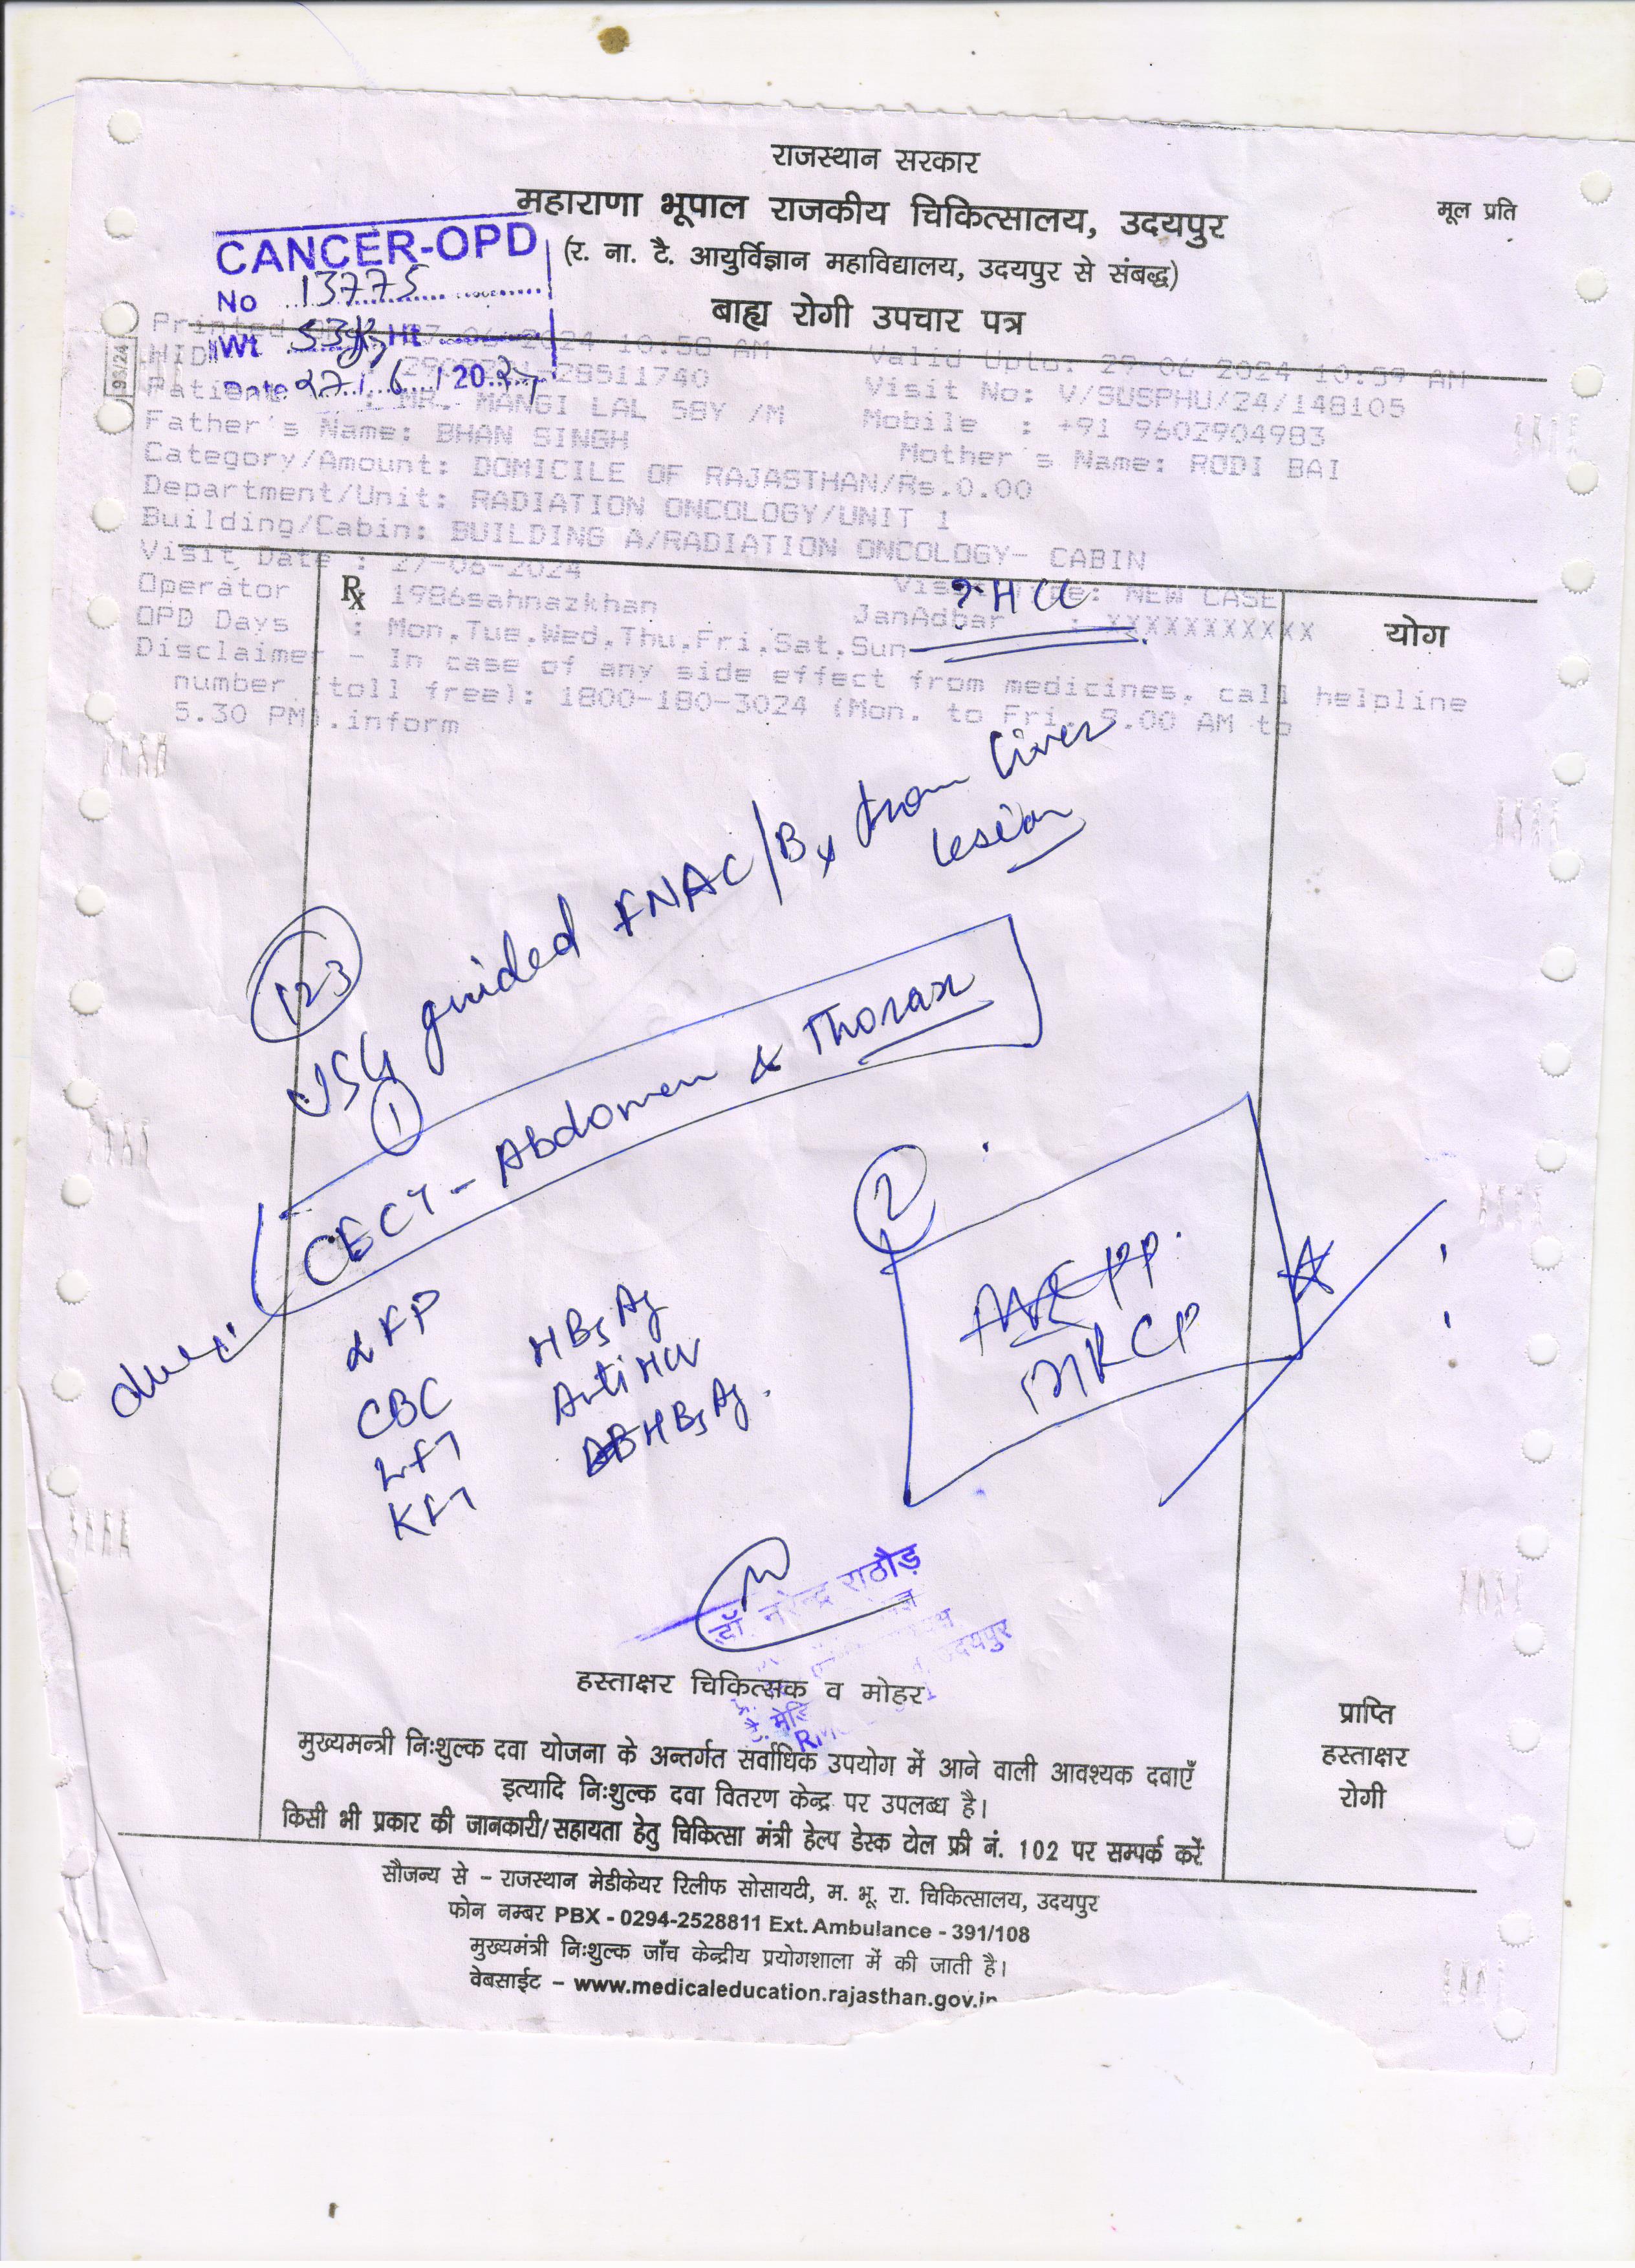 राजस्थान सरकार
महाराणा भूपाल राजकीय चिकित्सालय, उदयपुर
मूल प्रति
(र. ना. टै. आयुर्विज्ञान महाविद्यालय, उदयपुर से संबद्ध)
बाह्य रोगी उपचार पत्र
CANCER-OPD
No 13775
Wt 53kg Ht
Date 27/6/2024
93/24
Printed 2024 10:58 AM
Valid Upto: 29-06-2024 10:59 AM
HID
28511740
Visit No: V/SUSPHU/24/148105
MR. MANGI LAL 58Y /M
Mobile : +91 9602904983
Father's Name: BHAN SINGH
Mother's Name: RODI BAI
Category/Amount: DOMICILE OF RAJASTHAN/Rs.0.00
Department/Unit: RADIATION ONCOLOGY/UNIT 1
Building/Cabin: BUILDING A/RADIATION ONCOLOGY- CABIN
Visit Date : 27-06-2024
NEW CASE
Operator : 1986sahnazkhan
JanAdhar : XXXXXXXXXXX
OPD Days : Mon,Tue,Wed,Thu,Fri,Sat,Sun
Disclaimer - In case of any side effect from medicines, call helpline
number (toll free): 1800-180-3024 (Mon. to Fri. 9.00 AM to
5.30 PM).inform
Rx
? HCC
योग
123
USG guided FNAC/Bx from liver
lesion
1
CECT - Abdomen & Thorax
2
MRCP
αFP
CBC
LFT
KFT
HBsAg
Anti HCV
HBsAg
डॉ. नरेन्द्र राठौड़
उदयपुर
हस्ताक्षर चिकित्सक व मोहर
प्राप्ति
हस्ताक्षर
रोगी
मुख्यमन्त्री निःशुल्क दवा योजना के अन्तर्गत सर्वाधिक उपयोग में आने वाली आवश्यक दवाएँ
इत्यादि निःशुल्क दवा वितरण केन्द्र पर उपलब्ध है।
किसी भी प्रकार की जानकारी/सहायता हेतु चिकित्सा मंत्री हेल्प डेस्क टोल फ्री नं. 102 पर सम्पर्क करें
सौजन्य से – राजस्थान मेडीकेयर रिलीफ सोसायटी, म. भू. रा. चिकित्सालय, उदयपुर
फोन नम्बर PBX - 0294-2528811 Ext. Ambulance - 391/108
मुख्यमंत्री निःशुल्क जाँच केन्द्रीय प्रयोगशाला में की जाती है।
वेबसाईट – www.medicaleducation.rajasthan.gov.in